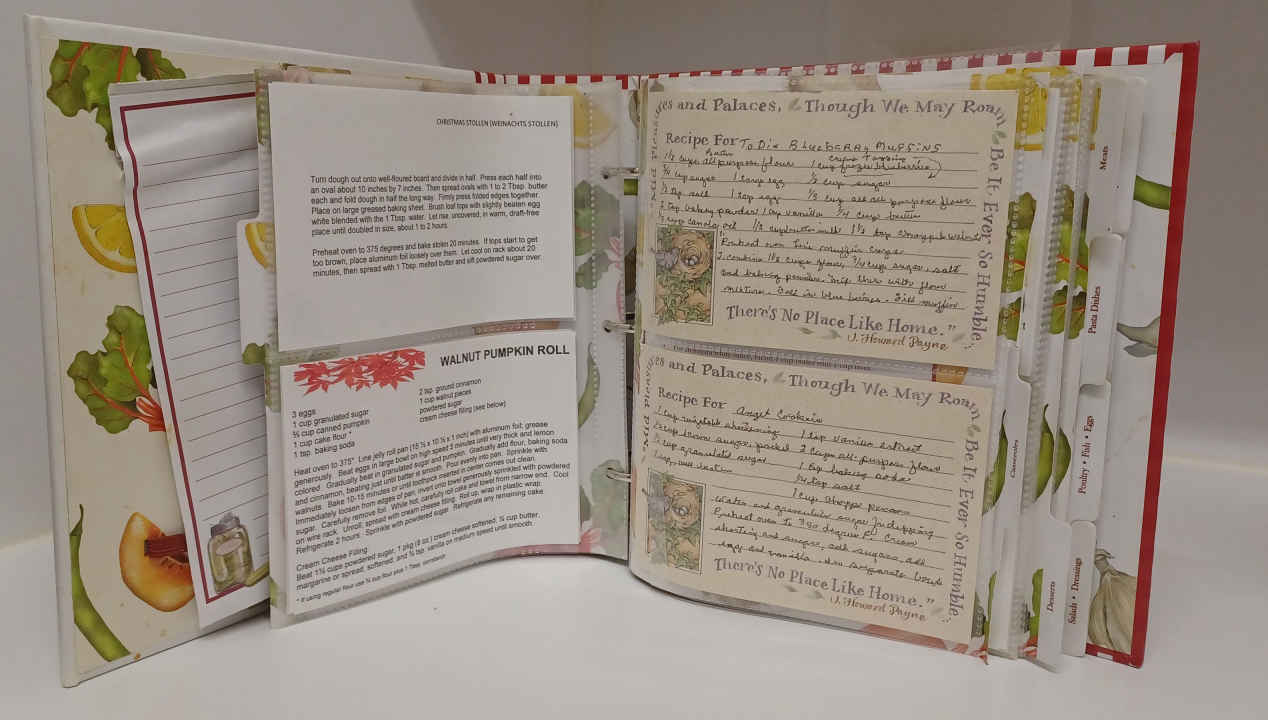 CHRISTMAS STOLLEN (WEINACHTS STOLLEN)
Turn dough out onto well-floured board and divide in half. Press each half into
an oval about 10 inches by 7 inches. Then spread ovals with 1 to 2 Tbsp. butter
each and fold dough in half the long way. Firmly press folded edges together.
Place on large greased baking sheet. Brush loaf tops with slightly beaten egg
white blended with the 1 Tbsp. water. Let rise, uncovered, in warm, draft-free
place until doubled in size, about 1 to 2 hours.
Preheat oven to 375 degrees and bake stollen 20 minutes. If tops start to get
too brown, place aluminum foil loosely over them. Let cool on rack about 20
minutes, then spread with 1 Tbsp. melted butter and sift powdered sugar over.
WALNUT PUMPKIN ROLL
3 eggs
1 cup granulated sugar
⅔ cup canned pumpkin
1 cup cake flour *
1 tsp. baking soda
2 tsp. ground cinnamon
1 cup walnut pieces
powdered sugar
cream cheese filling (see below)
Heat oven to 375° Line jelly roll pan (15 x 10 x 1 inch) with aluminum foil; grease
generously. Beat eggs in large bowl on high speed 5 minutes until very thick and lemon
colored. Gradually beat in granulated sugar and pumpkin. Gradually add flour, baking soda
and cinnamon, beating just until batter is smooth. Pour evenly into pan. Sprinkle with
walnuts. Bake 10-15 minutes or until toothpick inserted in center comes out clean.
Immediately loosen from edges of pan; invert onto towel generously sprinkled with powdered
sugar. Carefully remove foil. While hot, carefully roll cake and towel from narrow end. Cool
on wire rack. Unroll; spread with cream cheese filling. Roll up, wrap in plastic wrap.
Refrigerate 2 hours. Sprinkle with powdered sugar. Refrigerate any remaining cake.
Cream Cheese Filling
Beat 1½ cups powdered sugar, 1 pkg (8 oz.) cream cheese softened, ¼ cup butter,
margarine or spread, softened, and ¾ tsp. vanilla on medium speed until smooth.
* If using regular flour use ¾ cup flour plus 1 Tbsp. cornstarch
es and Palaces, Though We May Roam
Be It, Ever So Humble,
Recipe For To Die Blueberry Muffins
1½ cups all purpose flour 1 cup frozen blueberries
¾ cup sugar 1 large egg ½ cup sugar
½ tsp salt 1 tsp egg ⅓ cup all purpose flour
2 tsp baking powder 1 tsp vanilla ¼ cup butter
⅓ cup canola oil ⅓ cup buttermilk 1½ tsp
Preheat oven
2 combine 1½ cups flour, ¾ cup sugar, salt
and baking powder. Mix this with flour
mixture. Fold in blue berries. Fill muffin
There's No Place Like Home."
J. Howard Payne
es and Palaces, Though We May Roam
Be It, Ever So Humble,
Recipe For Angel Cookies
1 cup shortening 1 tsp vanilla extract
½ cup brown sugar, packed 2 cups all-purpose flour
½ cup granulated sugar 1 tsp baking soda
1 egg ½ tsp salt
1 cup chopped pecans
Water and granulated sugar for dipping
Preheat oven to 350 degrees F. Cream
shortening and sugars, add
egg and vanilla. In separate bowl
There's No Place Like Home."
J. Howard Payne
Casseroles
Desserts
Meats
Pasta Dishes
Poultry • Fish • Eggs
Salads • Dressings